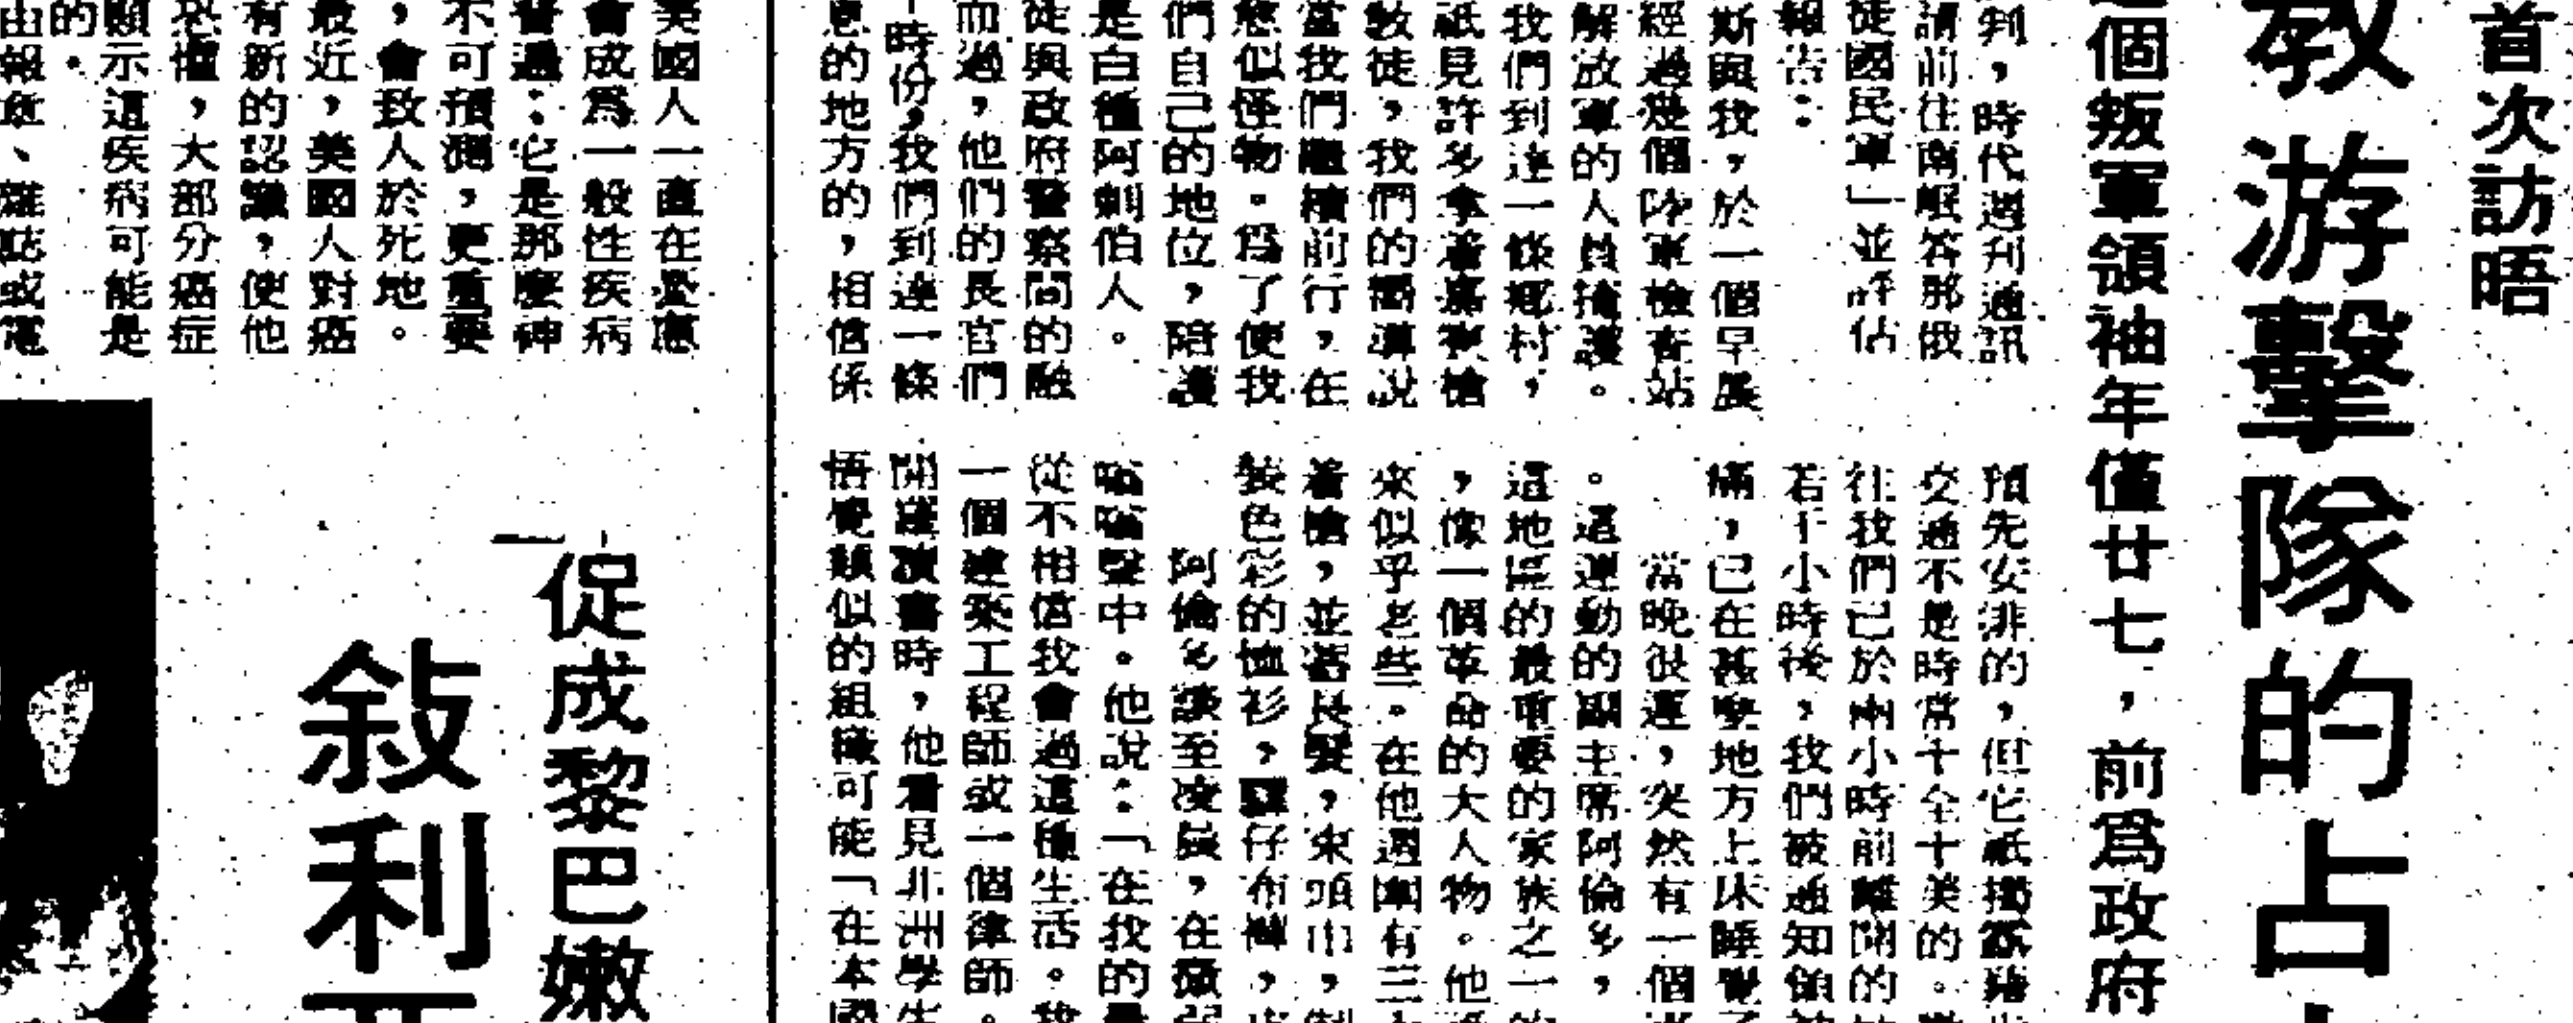 首次訪晤
教游擊隊的占
個叛軍領袖年僅廿七，前爲政府
到，時代週刊通訊
請前往南岷答那俄
徒國民軍」並評估
報告：
斯與我，於一個早晨
經過幾個陸軍檢查站
解放軍的人員掩護。
我們到達一條鄉村，
祇見許多拿着嘉蘭槍
教徒，我們的嚮導說
當我們繼續前行，在
慈似怪物。爲了使我
們自己的地位，陪護
是白種阿剌伯人。
徒與政府警察間的融
而過，他們的長官們
時份，我們到達一條
意的地方的，相信係
預先安排的，但它祇
交通不是時常十全十美的。
往我們已於兩小時前離開的
若干小時後，我們被通知領
痛，已在甚麼地方上床睡覺了
當晚很遲，突然有一個
。這運動的副主席阿倫多，
這地區的最重要的家族之一的
，像一個革命的大人物。他
來似乎老些。在他週圍有三
着槍，並蓄長髮，束頭巾，
裝色彩的恤衫，牛仔布褲，
阿倫多談至凌晨，在
聲中。他說：「在我的
從不相信我會過這種生活。我
一個建築工程師或一個律師。
開羅讀書時，他看見非洲學生
悟覺類似的組織可能「在本國
美國人一直在憂慮
會成爲一般性疾病
普遍：它是那麼神
不可預測，更重要
，會致人於死地。
最近，美國人對癌
有新的認識，使他
恐懼，大部分癌症
顯示這疾病可能是
的。
由報章、雜誌或電
促成黎巴嫩
敍利